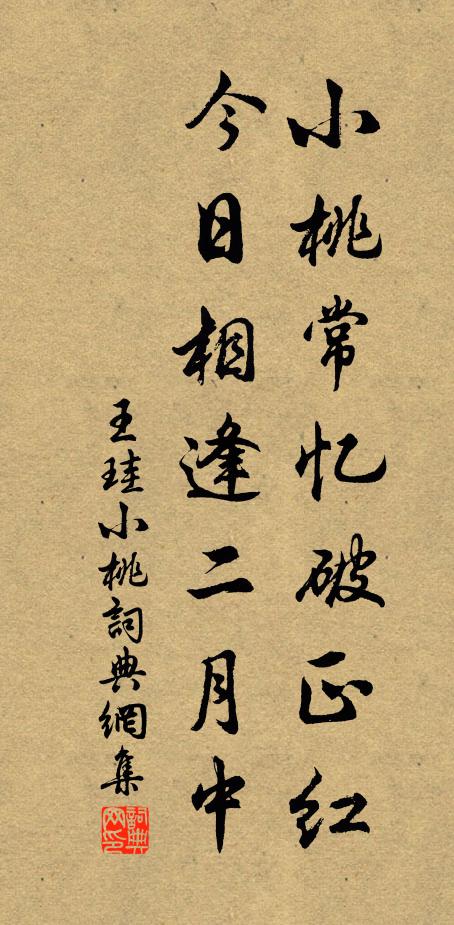 小桃常忆破正红
今日相逢二月中
王珪小桃詞典網集
詞典网印